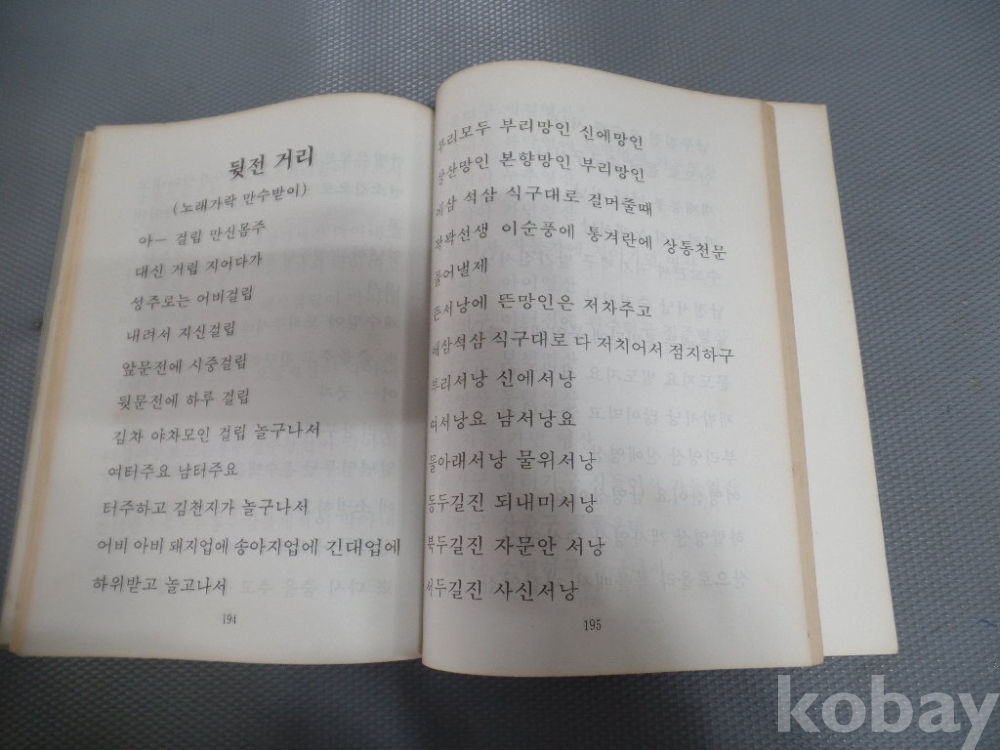 뒷전 거리
(노래가락 만수받이)
야— 걸립 만신몸주
대신 거립 지어다가
성주로는 어비걸립
내려서 지신걸립
앞문전에 시중걸립
뒷문전에 하루 걸립
김차 야차모인 걸립 놀구나서
여터주요 남터주요
터주하고 김천지가 놀구나서
어비 아비 돼지업에 송아지업에 긴대업에
하위받고 놀고나서
194
부리모두 부리망인 신에망인
상산망인 본향망인 부리망인
석삼 식구대로 걸머줄때
곽곽선생 이순풍에 통겨란에 상통천문
풀어낼제
든서낭에 뜬망인은 저차주고
석삼 식구대로 다 저치어서 점지하구
부리서낭 신에서낭
여서낭요 남서낭요
물아래서낭 물위서낭
동두길진 되내미서낭
북두길진 자문안 서낭
서두길진 사신서낭
195
kobay